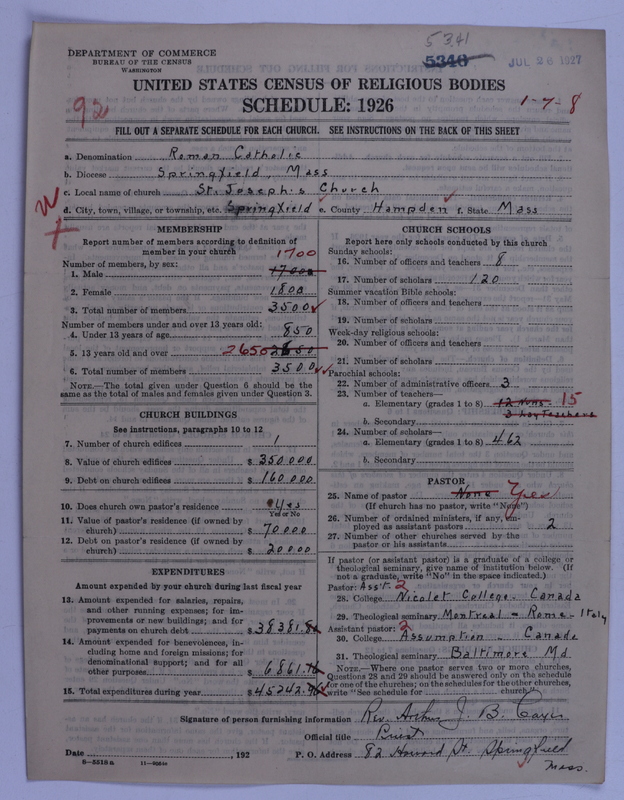 5341
5340
JUL 26 1927
DEPARTMENT OF COMMERCE
BUREAU OF THE CENSUS
WASHINGTON
UNITED STATES CENSUS OF RELIGIOUS BODIES
SCHEDULE: 1926
92
1-7-8
FILL OUT A SEPARATE SCHEDULE FOR EACH CHURCH. SEE INSTRUCTIONS ON THE BACK OF THIS SHEET
a. Denomination Roman Catholic
b. Diocese Springfield, Mass
c. Local name of church St. Joseph's Church
d. City, town, village, or township, etc. Springfield e. County Hampden f. State Mass
MEMBERSHIP
Report number of members according to definition of
member in your church
1700
Number of members, by sex:
1. Male 1700
2. Female 1800
3. Total number of members 3500
Number of members under and over 13 years old:
4. Under 13 years of age 850
5. 13 years old and over 2650
6. Total number of members 3500
NOTE.—The total given under Question 6 should be the
same as the total of males and females given under Question 3.
CHURCH BUILDINGS
See instructions, paragraphs 10 to 12
7. Number of church edifices 1
8. Value of church edifices $ 350000
9. Debt on church edifices $ 160000
10. Does church own pastor's residence yes
Yes or No
11. Value of pastor's residence (if owned by
church) $ 70000
12. Debt on pastor's residence (if owned by
church) $ 20000
EXPENDITURES
Amount expended by your church during last fiscal year
13. Amount expended for salaries, repairs,
and other running expenses; for im-
provements or new buildings; and for
payments on church debt $ 38381.
14. Amount expended for benevolences, in-
cluding home and foreign missions; for
denominational support; and for all
other purposes $ 6861.
15. Total expenditures during year $ 45242.
CHURCH SCHOOLS
Report here only schools conducted by this church
Sunday schools:
16. Number of officers and teachers 8
17. Number of scholars 120
Summer vacation Bible schools:
18. Number of officers and teachers
19. Number of scholars
Week-day religious schools:
20. Number of officers and teachers
21. Number of scholars
Parochial schools:
22. Number of administrative officers 3
23. Number of teachers—
a. Elementary (grades 1 to 8) 12 Nuns. 15
3 Lay Teachers
b. Secondary
24. Number of scholars—
a. Elementary (grades 1 to 8) 462
b. Secondary
PASTOR
25. Name of pastor None Yes
(If church has no pastor, write "None")
26. Number of ordained ministers, if any, em-
ployed as assistant pastors 2
27. Number of other churches served by the
pastor or his assistants
If pastor (or assistant pastor) is a graduate of a college or
theological seminary, give name of institution below. (If
not a graduate, write "No" in the space indicated.)
Pastor: Ass't 2
28. College Nicolet College - Canada
29. Theological seminary Montreal - Rome - Italy
Assistant pastor: 2
30. College Assumption - Canada
31. Theological seminary Baltimore Md
NOTE.—Where one pastor serves two or more churches,
Questions 28 and 29 should be answered only on the schedule
for one of the churches; on the schedules for the other churches,
write "See schedule for church"
Signature of person furnishing information Rev. Arthur J. B.
Official title Priest
Date , 192 P. O. Address 82 Howard St. Springfield
Mass.
8-5518a 11-9054